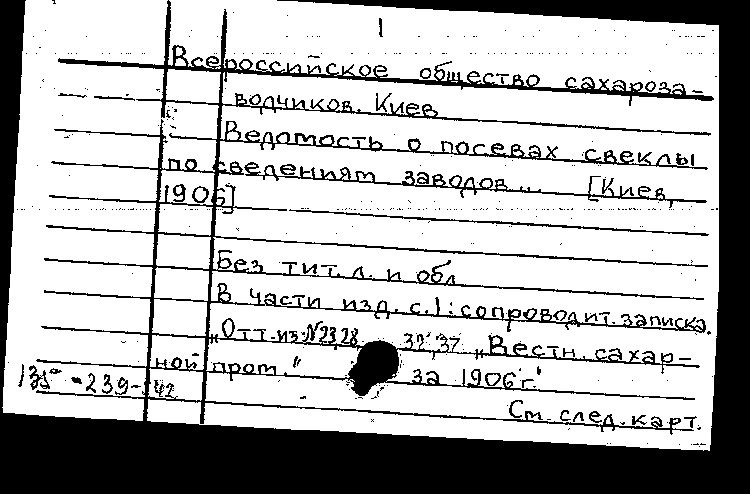 1
Всероссийское общество сахароза-
водчиков. Киев
Ведомость о посевах свеклы
по сведениям заводов... [Киев,
1906]
Без тит. л. и обл
В части изд. с.1: сопроводит. записка.
„Отт. из: №23,28, 32, 37 „Вестн. сахар-
ной пром." за 1906 г."
-239-
См. след. карт.